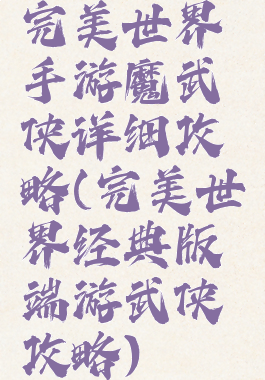 完美世界
手游魔武
侠详细攻
略(完美世
界经典版
端游武侠
攻略)